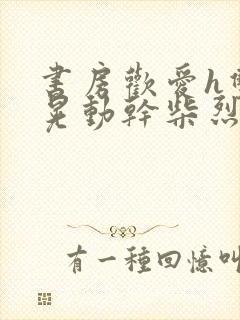 書房歡愛h
晃動幹柴烈
有一種回憶叫